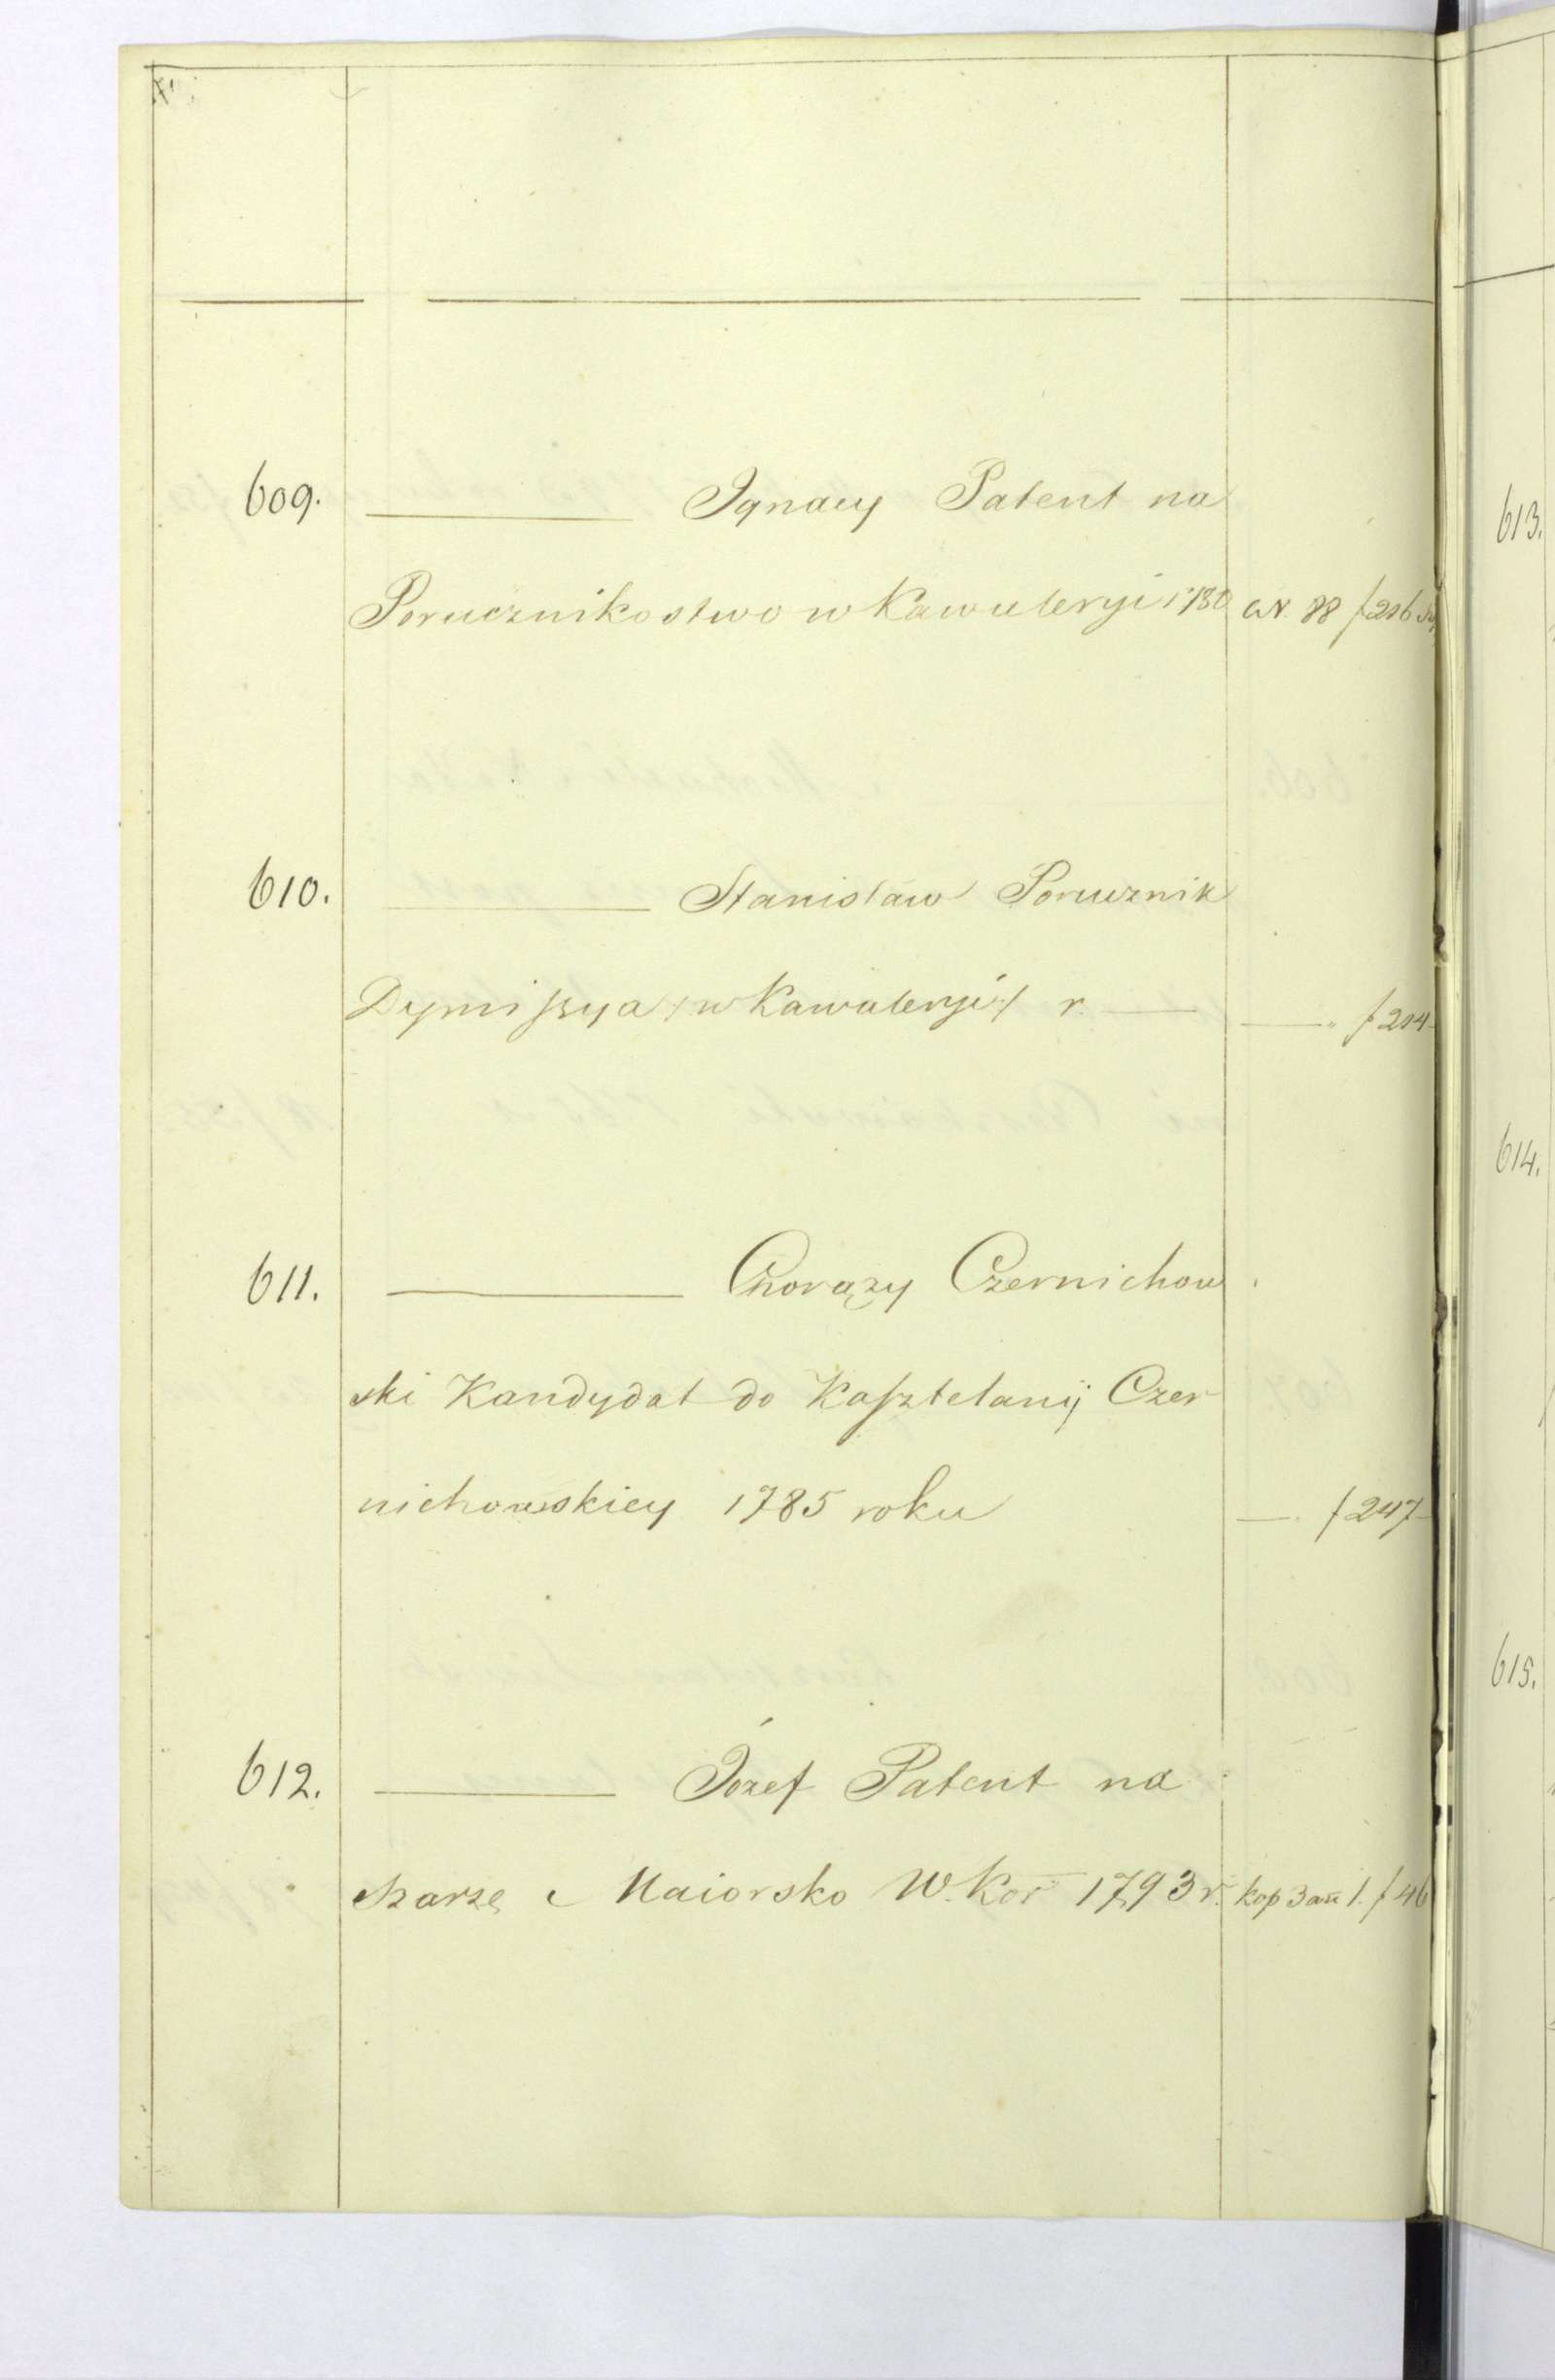 609. ——— Ignacy Patent na
Porucznikostwo w Kawaleryi 1780 N. 88 f 216
610. ——— Stanisław Porucznik
Dymissya /: w Kawaleryi :/ r. — —„ f 214
611. ——— Chorązy Czernichow
ski Kandydat do Kasztelanij Czer
nichowskiey 1785 roku — f 247
612. ——— Józef Patent na
Szarzę Maiorsko W. Kor 1793 r. kop 3 ań 1. f 46
613.
614.
615.